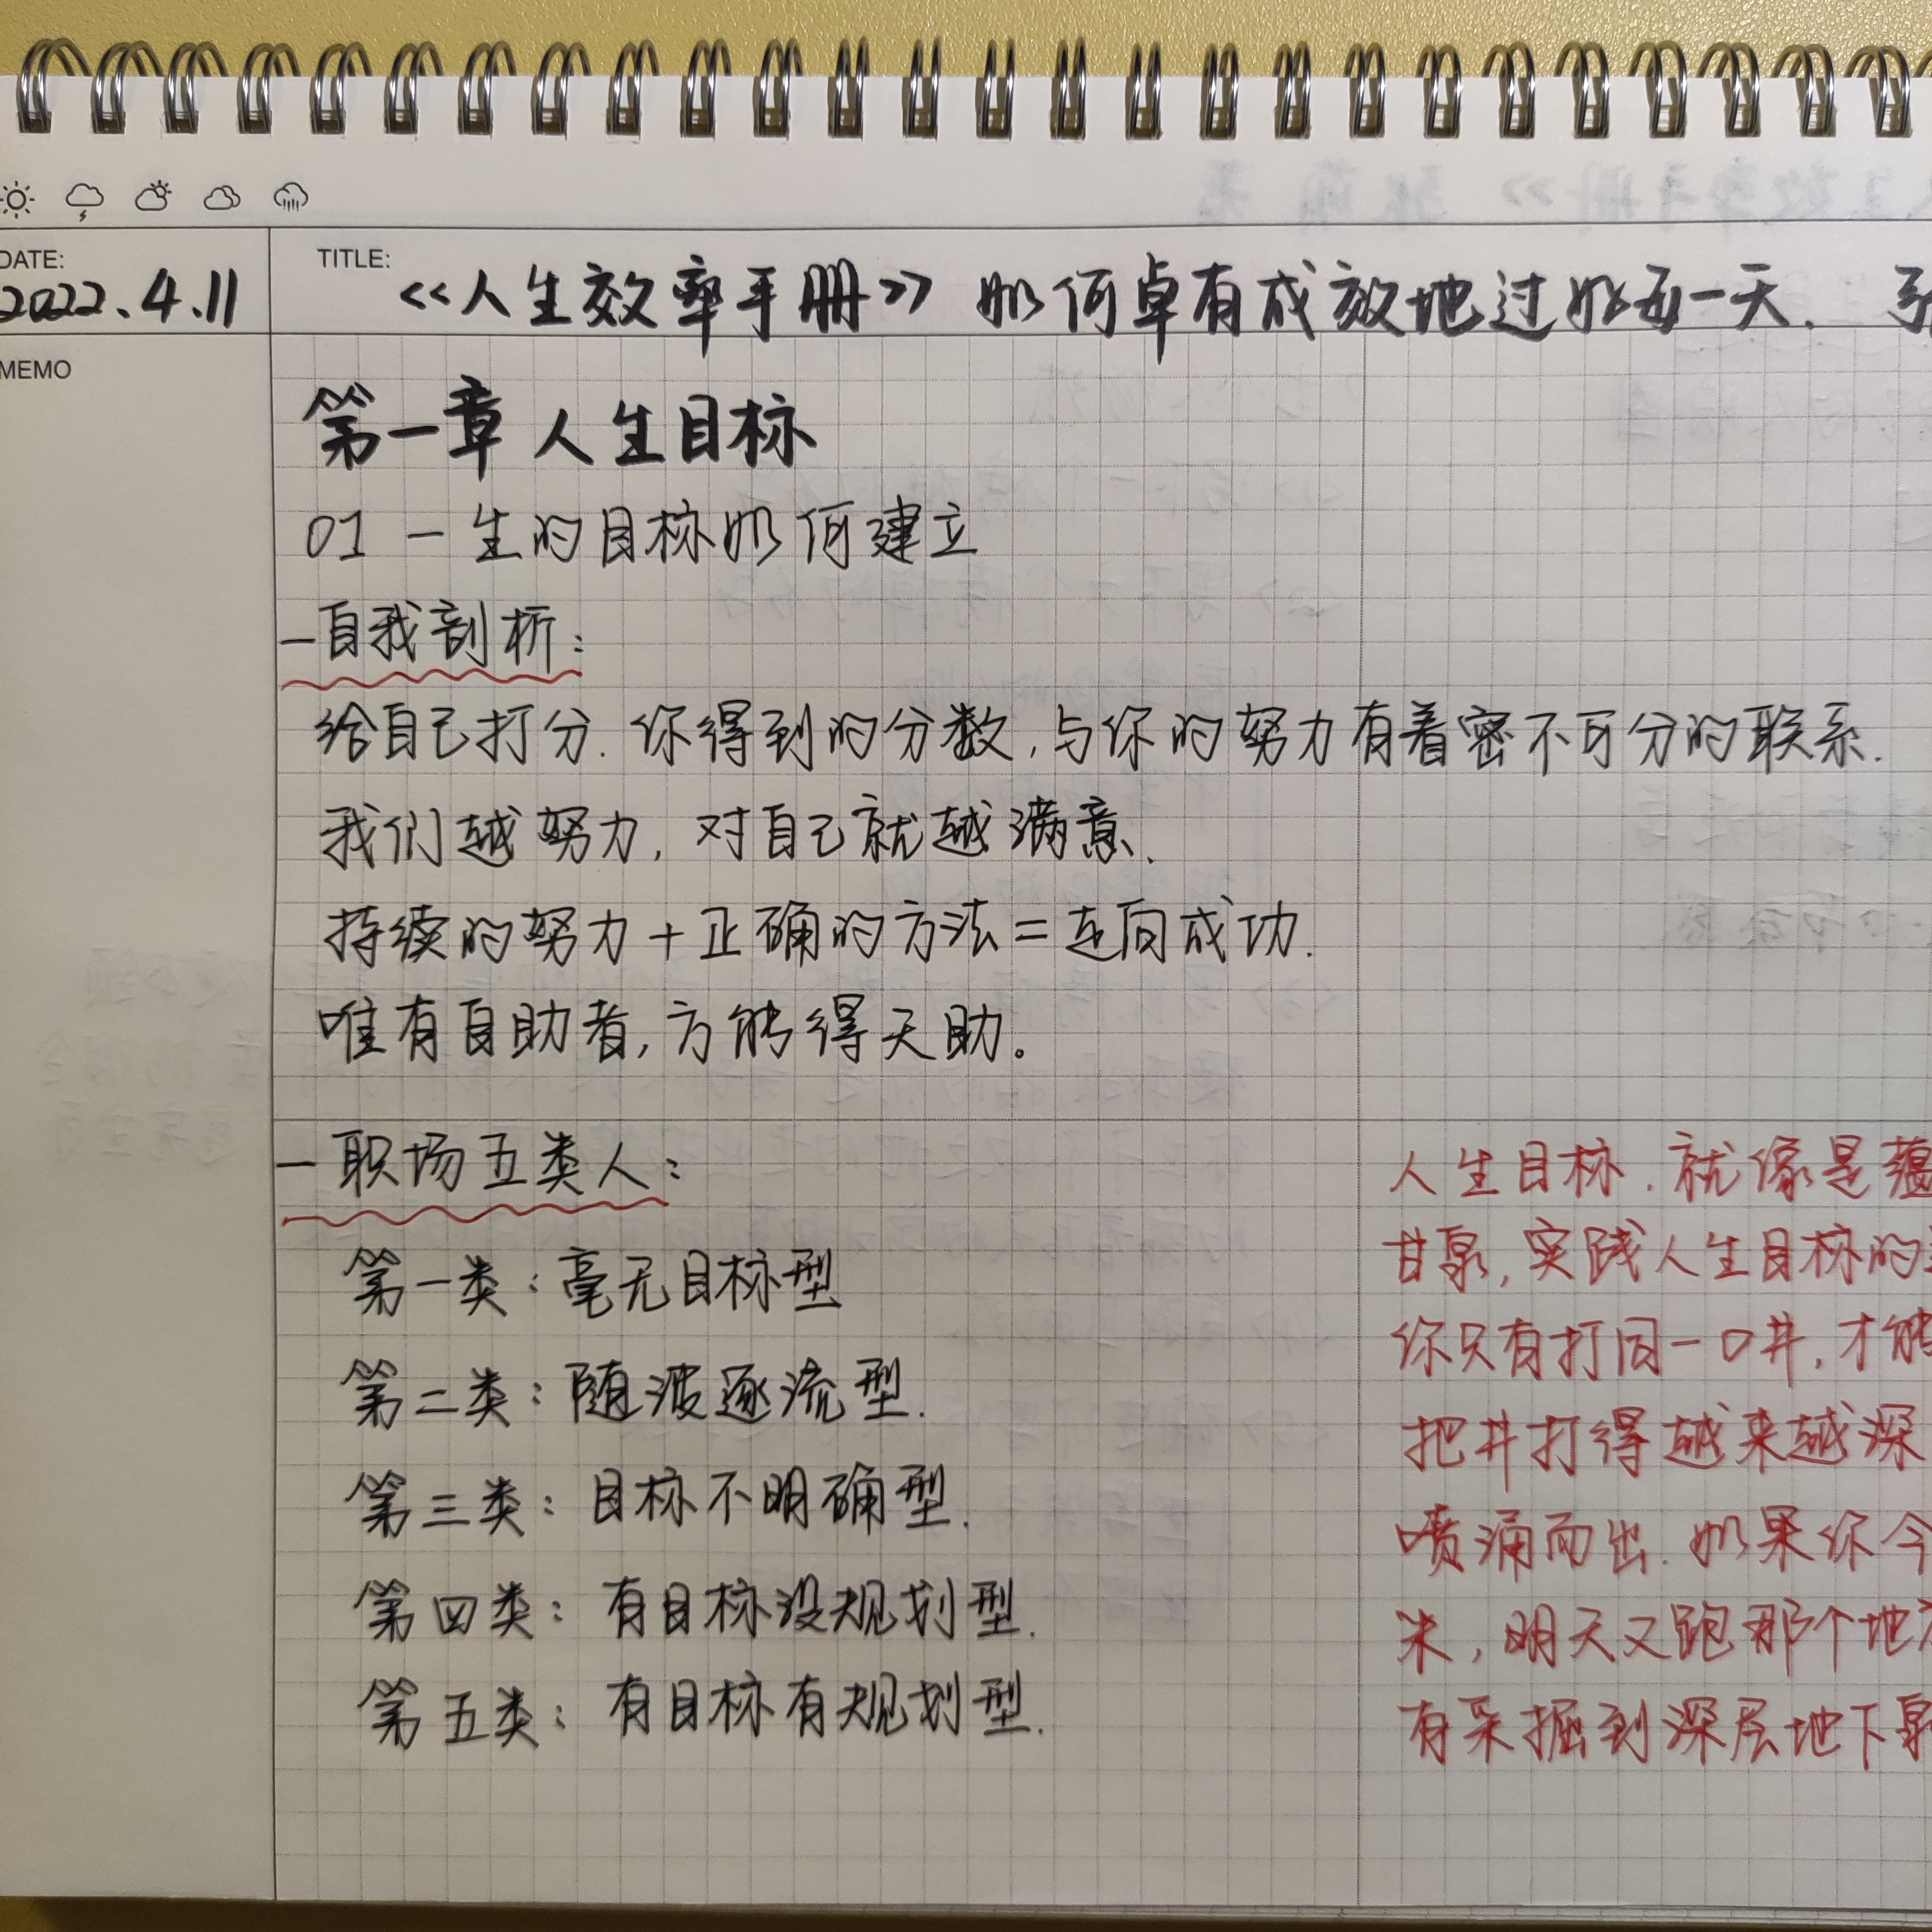 DATE:
2022.4.11
TITLE:
《人生效率手册》 如何卓有成效地过好每一天. 张
MEMO
第一章 人生目标
01 一生的目标如何建立
一自我剖析:
给自己打分. 你得到的分数, 与你的努力有着密不可分的联系.
我们越努力, 对自己就越满意.
持续的努力+正确的方法=走向成功.
唯有自助者, 方能得天助。
一职场五类人:
第一类: 毫无目标型
第二类: 随波逐流型.
第三类: 目标不明确型.
第四类: 有目标没规划型.
第五类: 有目标有规划型.
人生目标. 就像是蕴
甘泉, 实践人生目标的
你只有打同一口井, 才能
把井打得越来越深
喷涌而出. 如果你今
米, 明天又跑那个地方
有采掘到深层地下泉